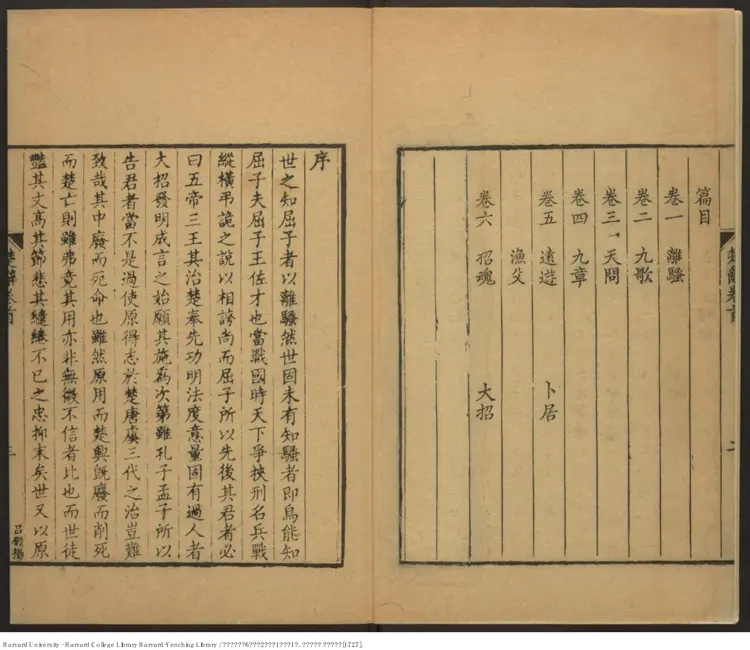 篇目
卷一 離騷
卷二 九歌
卷三 天問
卷四 九章
卷五 遠遊 卜居
漁父
卷六 招魂 大招
楚辭卷首
二
序
世之知屈子者以離騷然世固未有知騷者即烏能知
屈子夫屈子王佐才也當戰國時天下爭挾刑名兵戰
縱橫弔詭之說以相誇尚而屈子所以先後其君者必
曰五帝三王其治楚奉先功明法度意量固有過人者
大招發明成言之始願其施為次第雖孔子孟子所以
告君者當不是過使原得志於楚唐虞三代之治豈難
致哉其中廢而死命也雖然原用而楚興既廢而削死
而楚亡則雖弗竟其用亦非無徵不信者比也而世徒
豔其文高其節悲其繾綣不已之忠抑末矣世又以原
楚辭卷首
三
Harvard University - Harvard College Library Harvard-Yenching Library / ??????6???2???1???1?. ????? ?????[1727].